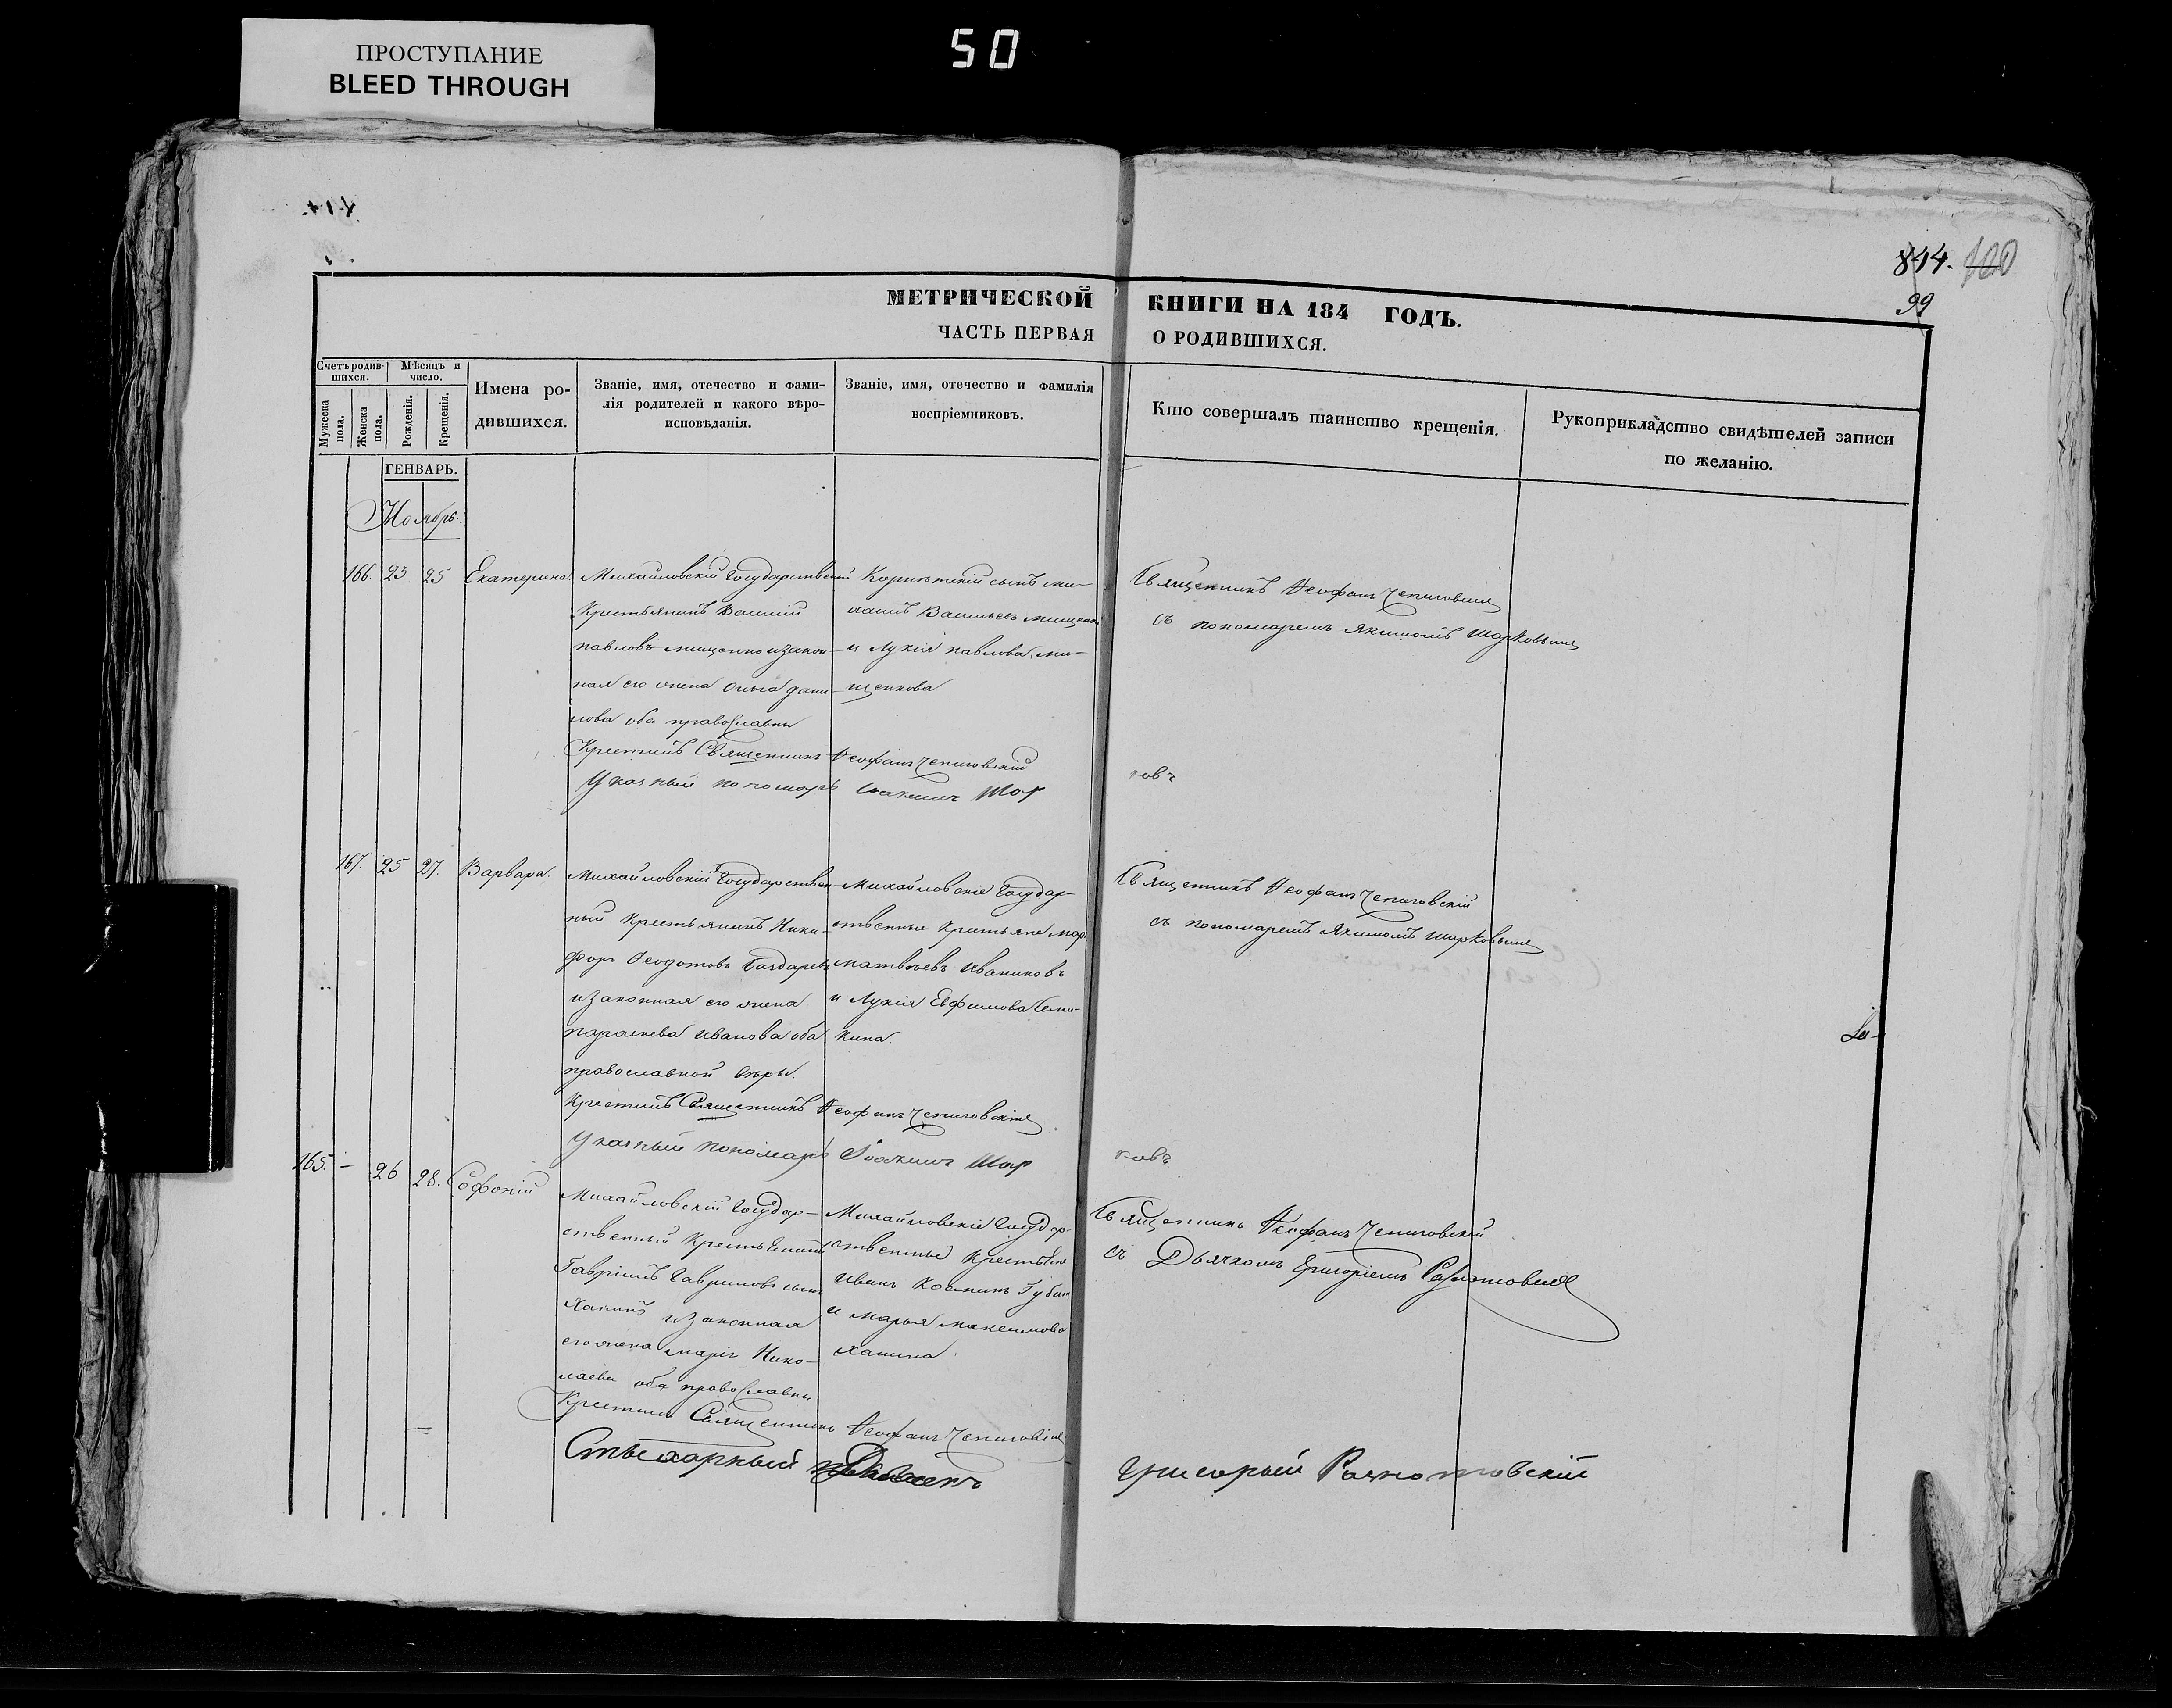 ПРОСТУПАНИЕ
BLEED THROUGH
50
814. 100
99
МЕТРИЧЕСКОЙ КНИГИ НА 184 ГОДЪ.
ЧАСТЬ ПЕРВАЯ О РОДИВШИХСЯ.
Счетъ родив-
шихся.
Мужеска
пола.
Женска
пола.
Мѣсяцъ и
число.
Рожденія.
Крещенія.
Имена ро-
дившихся.
Званіе, имя, отечество и фами-
лія родителей и какого вѣро-
исповѣданія.
Званіе, имя, отечество и фамилія
воспріемниковъ.
Кто совершалъ таинство крещенія.
Рукоприкладство свидѣтелей записи
по желанію.
ГЕНВАРЬ.
Ноябрь.
166. 23 25 Екатерина.
Михайловскій Государственный
Крестьянинъ Василій
павловъ мищенко и закон-
ная его жена Ольга дани-
лова оба православны
сынъ ми-
Васильевъ мищенко
и Лукія павлова ми-
щенкова
Священникъ Феофанъ
съ пономаремъ Якимомъ Шарковымъ
Крестилъ Священникъ Феофанъ
Указный пономарь Іоакимъ Шар ковъ
167. 25 27. Варвара.
Михайловскій Государствен-
ный крестьянинъ Ники-
форъ Феодотовъ
и законная его жена
параскева Иванова оба
православной вѣры.
Михайловскіе Государ-
ственные крестьяне
матвѣевъ Иваниковъ
и Лукія Евфимова
кина.
Священникъ Феофанъ
съ пономаремъ Якимомъ Шарковымъ
Крестилъ Священникъ Феофанъ
Указный пономарь Іоакимъ Шар ковъ
165. - 26 28. Софоній
Михайловскій Государ-
ственный Крестьянинъ
Гавріилъ Гавриловъ сынъ
Ханинъ и законная
его жена марія Нико-
лаева оба православны
Михайловскіе Государ-
ственные крестьяне
Иванъ Козминъ
и марья максимова
ханина
Священникъ Феофанъ
съ Дьячкомъ Григоріемъ
Крестилъ Священникъ Феофанъ
Стихарный
Григорій